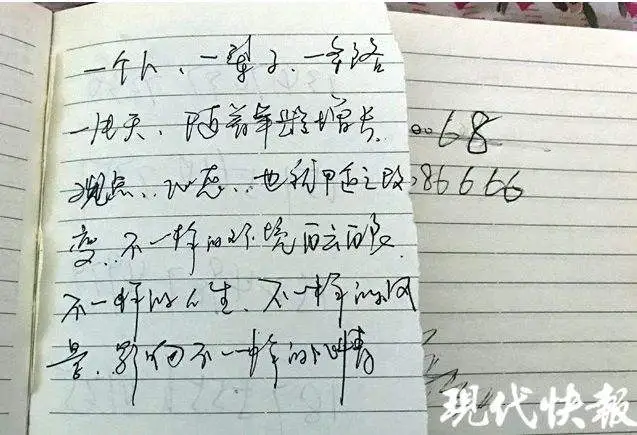 一个人、一辈子、一条路
一片天、随着年龄增长
观点、心态、也之改
变、不一样的环境
不一样的人生、不一样的风
景、影响不一样的心情
68
86666
现代快报